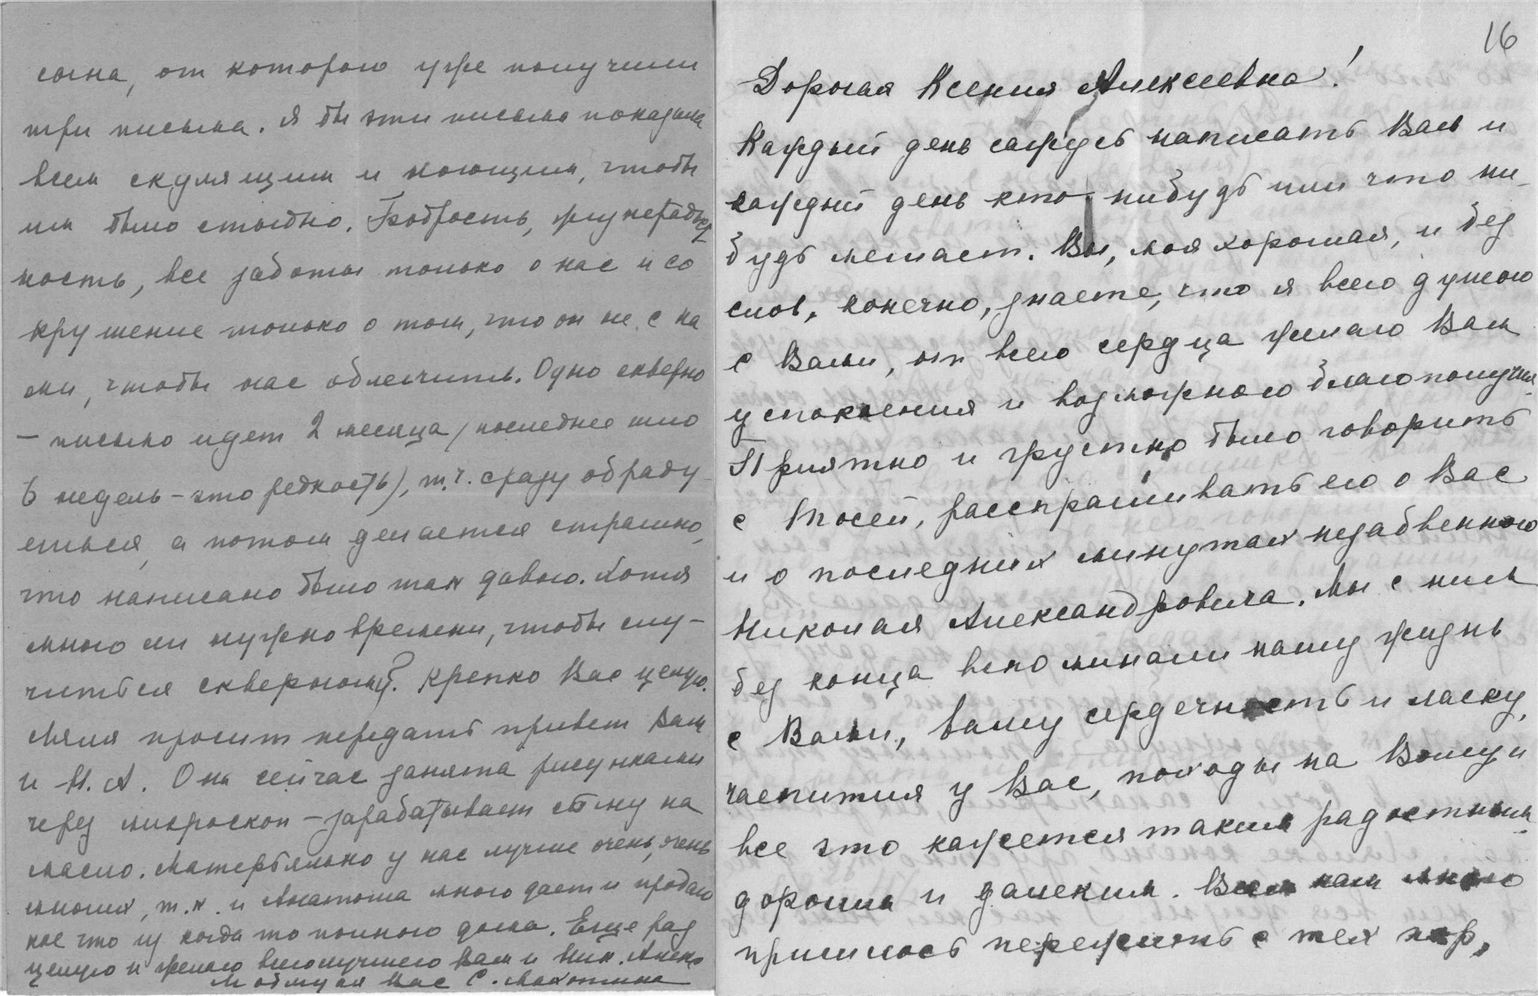 16
Дорогая Ксения Алексеевна!
Каждый день сажусь написать Вам и
каждый день кто-нибудь или что ни-
будь мешает. Вы, моя хорошая, и без
слов, конечно, знаете, что я всею душою
с Вами, от всего сердца желаю Вам
успокоения и возможного благополучия.
Приятно и грустно было говорить
с Тосей, расспрашивать его о Вас
и о последних минутах незабвенного
Николая Александровича. Мы с ним
без конца вспоминали нашу жизнь
с Вами, вашу сердечность и ласку,
чаепития у Вас, походы на Волгу и
все это кажется таким радостным,
дорогим и далеким. Всем нам много
пришлось пережить с тех пор,
сына, от которого уже получили
три письма. Я бы эти письма показала
всем скулящим и ноющим, чтобы
им было стыдно. Бодрость, жизнерадост
ность, все заботы только о нас и со
крушение только о том, что он не с на
ми, чтобы нас облегчить. Одно скверно
— письмо идет 2 месяца (последнее шло
6 недель – это редкость), т.ч. сразу обраду
ешься, а потом делается страшно,
что написано было так давно. Хотя
много ли нужно времени, чтобы слу-
читься скверному? Крепко Вас целую.
Ляля просит передать привет Вам
и Н.А. Она сейчас занята рисунками
через микроскоп – зарабатывает на
масло. Материально у нас лучше очень, очень
многих, т.к. и много дает и продаю
кое что из когда то полного дома. Еще раз
целую и желаю всего лучшего Вам и Ник. Алекс
Любящая Вас С.